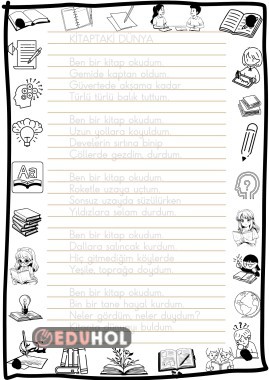 KİTAPTAKİ DÜNYA
Ben bir kitap okudum.
Gemide kaptan oldum.
Güvertede akşama kadar
Türlü türlü balık tuttum.
Ben bir kitap okudum.
Uzun yollara koyuldum.
Develerin sırtına binip
Çöllerde gezdim, durdum.
Ben bir kitap okudum.
Roketle uzaya uçtum.
Sonsuz uzayda süzülürken
Yıldızlara selam durdum.
Ben bir kitap okudum
Dallara salıncak kurdum.
Hiç gitmediğim köylerde
Yeşile, toprağa doydum.
Ben bir kitap okudum.
Bin bir tane hayal kurdum.
Neler gördüm, neler duydum?
buldum.
EDUHOL
Aa